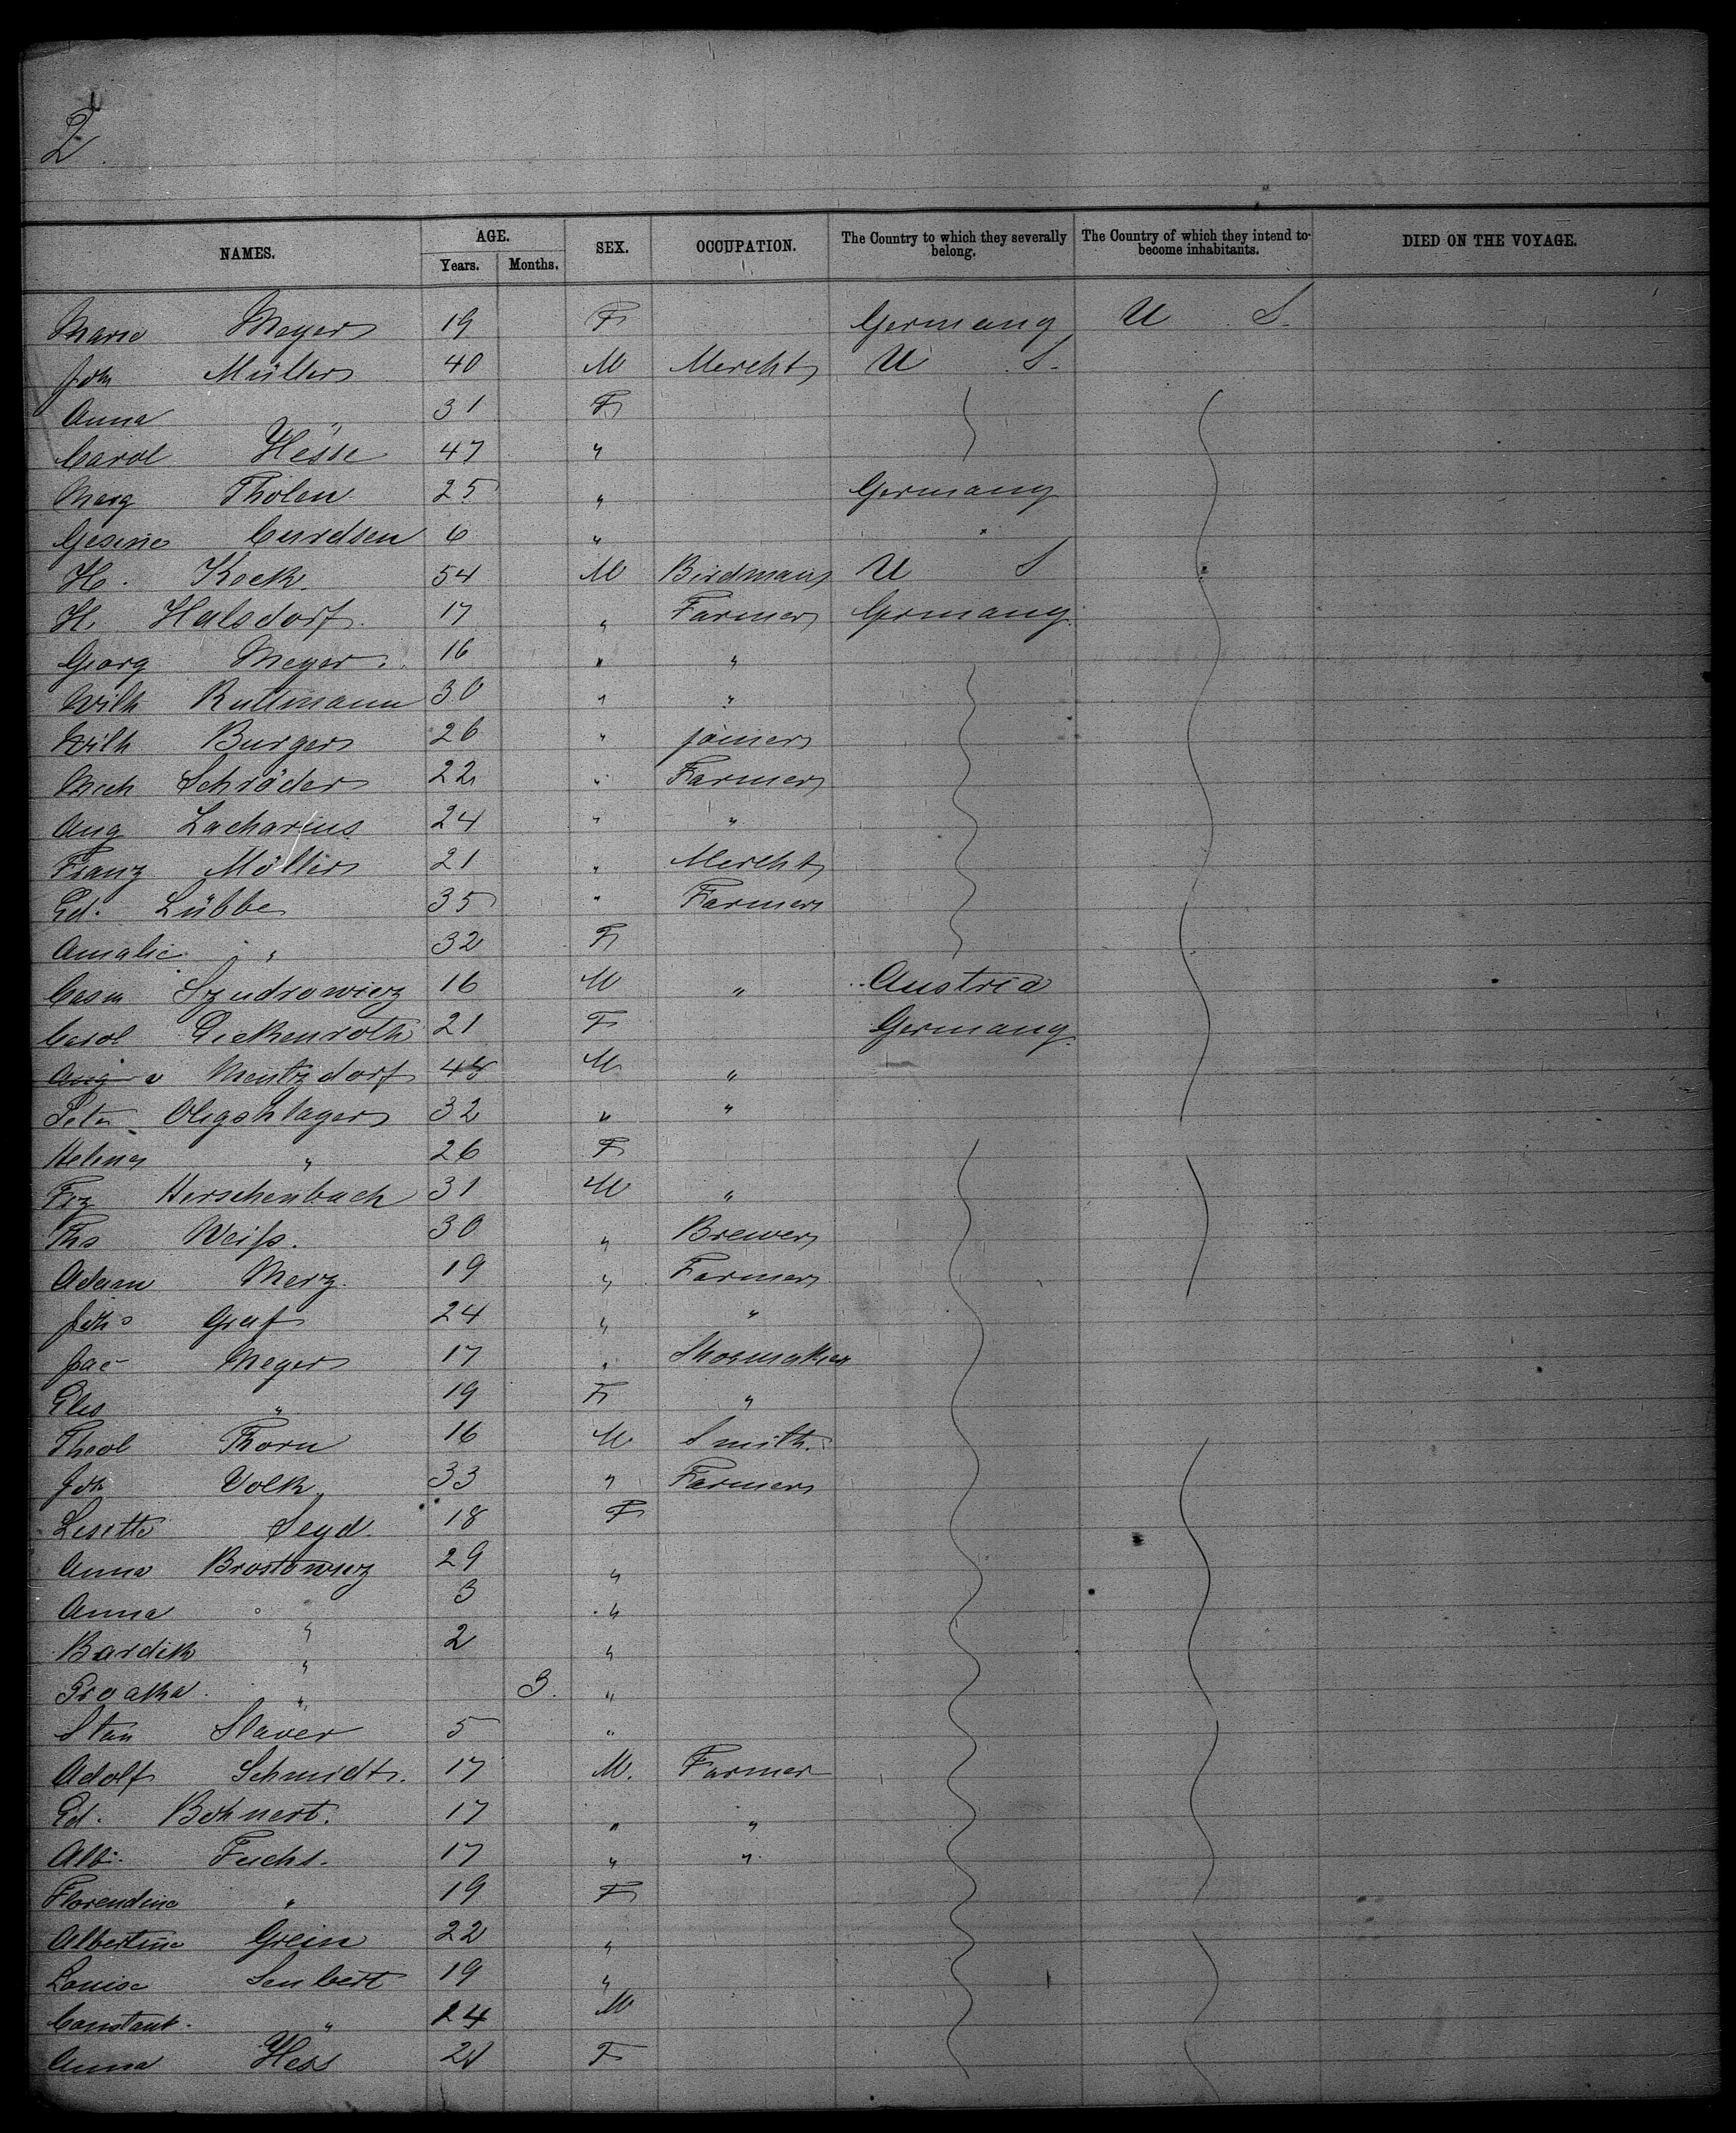 2.
NAMES. AGE. Years. Months. SEX. OCCUPATION. The Country to which they severally belong. The Country of which they intend to become inhabitants. DIED ON THE VOYAGE.
Marie Meyer 19 F Germany U S.
Joh Müller 40 M Mercht U S.
Anna " 31 F
Carol Hesse 47 "
Marg Tholen 25 " Germany
Gesine Curdsen 6 " "
H. Kock. 54 M Birdman U S
H. Halsdorf. 17 " Farmer Grmany.
Georg Meyer. 16 " "
Wilh Rullmann 30 " "
Wilh Burger 26 " joiner
Mich Schröder 22 " Farmer
Aug Zacharius 24 " "
Franz Möller 21 " Mercht
Ed. Lübbe 35 " Farmer
Amalie " 32 F
Casm Szudrowicz 16 M " Austria
Carol Eickenroth 21 F Germany.
Aug v Mentzdorf 48 M "
Peter Oligshlager 32 " "
Helena " 26 F
Frz Herschenbach 31 M "
Ths Weiß. 30 " Brewer
Adam Merz. 19 " Farmer
Johs Graf 24 " "
Jac Meyer 17 " Shoemaker
Elis " 19 F "
Theol Thorn 16 M Smith.
Joh Volk 33 " Farmer
Lisette Seyd. 18 F
Anna Brostowicz 29 "
Anna " 3 "
Bardik " 2 "
" 3. "
Stan Slaver 5 "
Adolf Schmidt. 17 M. Farmer
Ed. Bohnert. 17 " "
Alb. Fuchs. 17 " "
Florendine " 19 F
Albertine Grein 22 "
Louise Seubert 19 "
Constant. " 24 M
Anna Hess 21 F